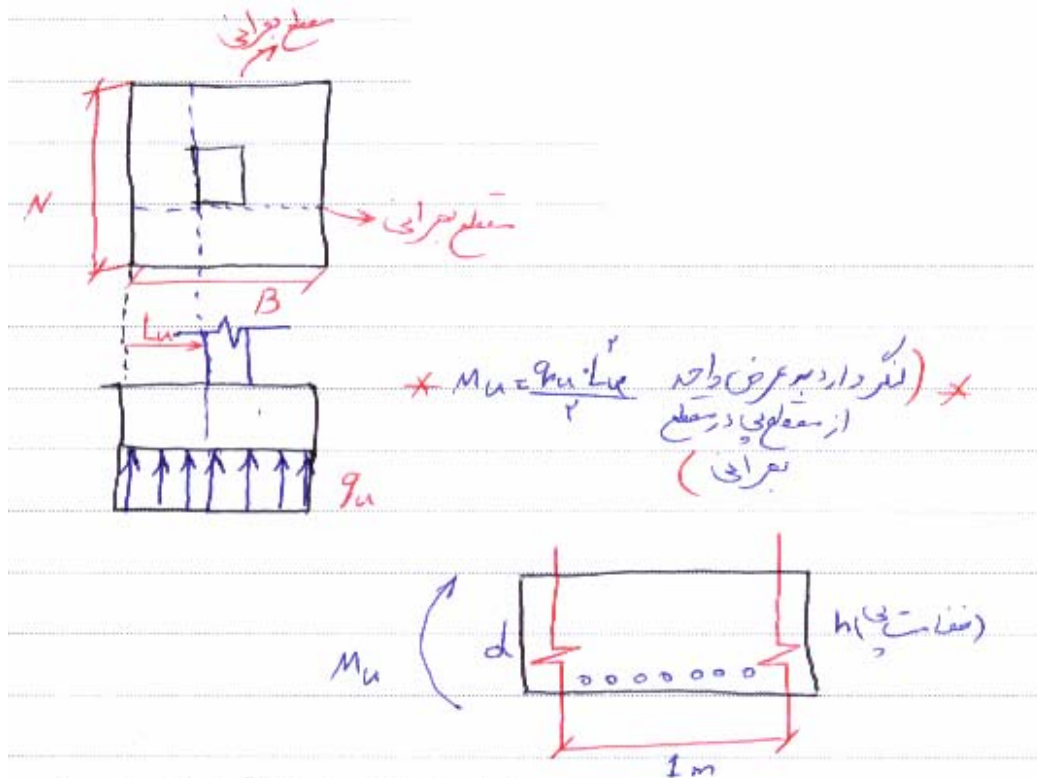 مقطع بحرانی
N
مقطع بحرانی
B
Lu
* Mu = qu . Lu² / ۲ (لنگر وارد به عرض واحد *
از مقطع پی در مقطع
بحرانی)
qu
Mu
d
h (ضخامت پی)
1 m